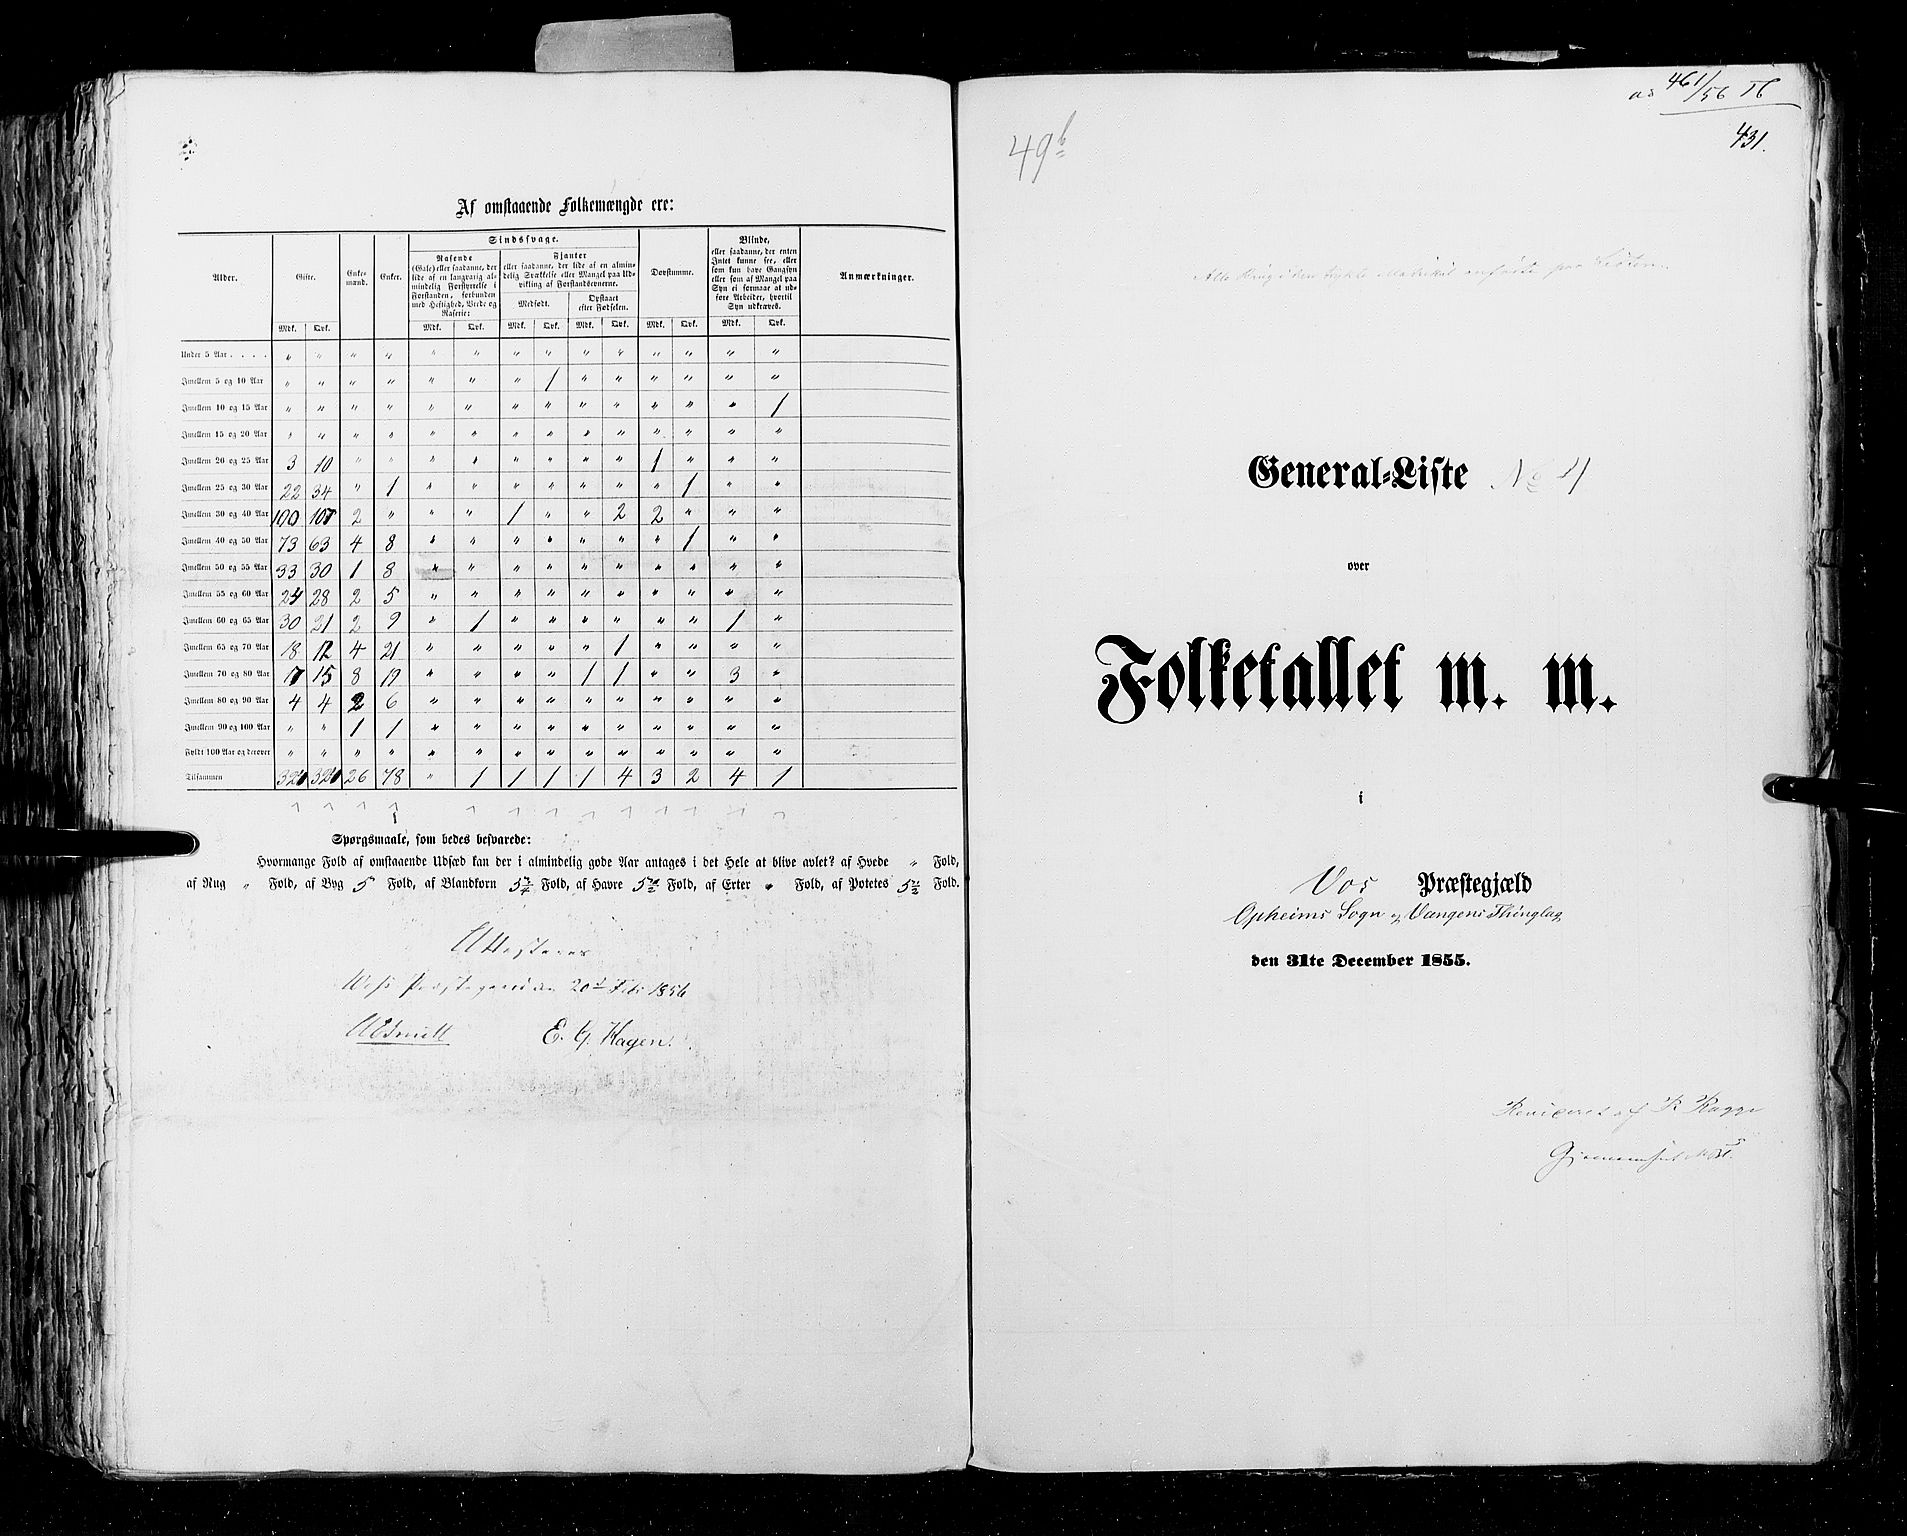 Af omstaaende Folkemængde ere:
Alder. Gifte. Enkemænd. Enker. Sindssvage. Døvstumme. Blinde, Anmærkninger.
Rasende (Gale) eller saadanne, der lide af en langvarig almindelig Forstyrrelse i Forstanden, forbunden med Heftighed, Vrede og Raserie:
Fjanter eller saadanne, der lide af en almindelig Svækkelse eller Mangel paa Udvikling af Forstandsevnerne.
Medfødt. Opstaaet efter Fødselen.
eller saadanne, der enten Intet kunne see, eller som kun have Gangsyn eller som af Mangel paa Syn ei formaae at udføre Arbeider, hvortil Syn udkræves.
Mdk. Qvk. Mdk. Qvk. Mdk. Qvk. Mdk. Qvk. Mdk. Qvk. Mdk. Qvk.
Under 5 Aar . . . . " " " " " " " " " " " " " "
Imellem 5 og 10 Aar " " " " " " " 1 " " " " " "
Imellem 10 og 15 Aar " " " " " " " " " " " " " 1
Imellem 15 og 20 Aar " " " " " " " " " " " " " "
Imellem 20 og 25 Aar 3 10 " " " " " " " " 1 " " "
Imellem 25 og 30 Aar 22 34 " 1 " " " " " " " 1 " "
Imellem 30 og 40 Aar 100 107 2 " " " 1 " " 2 2 " " "
Imellem 40 og 50 Aar 73 63 4 8 " " " " " " " 1 " "
Imellem 50 og 55 Aar 33 30 1 8 " " " " " " " " " "
Imellem 55 og 60 Aar 24 28 2 5 " " " " " " " " " "
Imellem 60 og 65 Aar 30 21 2 9 " 1 " " " " " " 1 "
Imellem 65 og 70 Aar 18 12 4 21 " " " " " 1 " " " "
Imellem 70 og 80 Aar 17 15 8 19 " " " " 1 1 " " 3 "
Imellem 80 og 90 Aar 4 4 2 6 " " " " " " " " " "
Imellem 90 og 100 Aar " " 1 1 " " " " " " " " " "
Fyldt 100 Aar og derover " " " " " " " " " " " " " "
Tilsammen 26 78 " 1 1 1 1 4 3 2 4 1
Spørgsmaale, som bedes besvarede:
Hvormange Fold af omstaaende Udsæd kan der i almindelig gode Aar antages i det Hele at blive avlet? af Hvede " Fold,
af Rug " Fold, af Byg 5 Fold, af Blandkorn Fold, af Havre Fold, af Erter " Fold, af Potetes Fold.
Attesteres
20de Feb 1856
E. G. Hagen.
461/56
431.
49b
General-Liste No 4
over
Folketallet m. m.
i
Vos Præstegjæld
Opheims Sogn og Vangens Thinglag
den 31te December 1855.
Revideret af Kagge